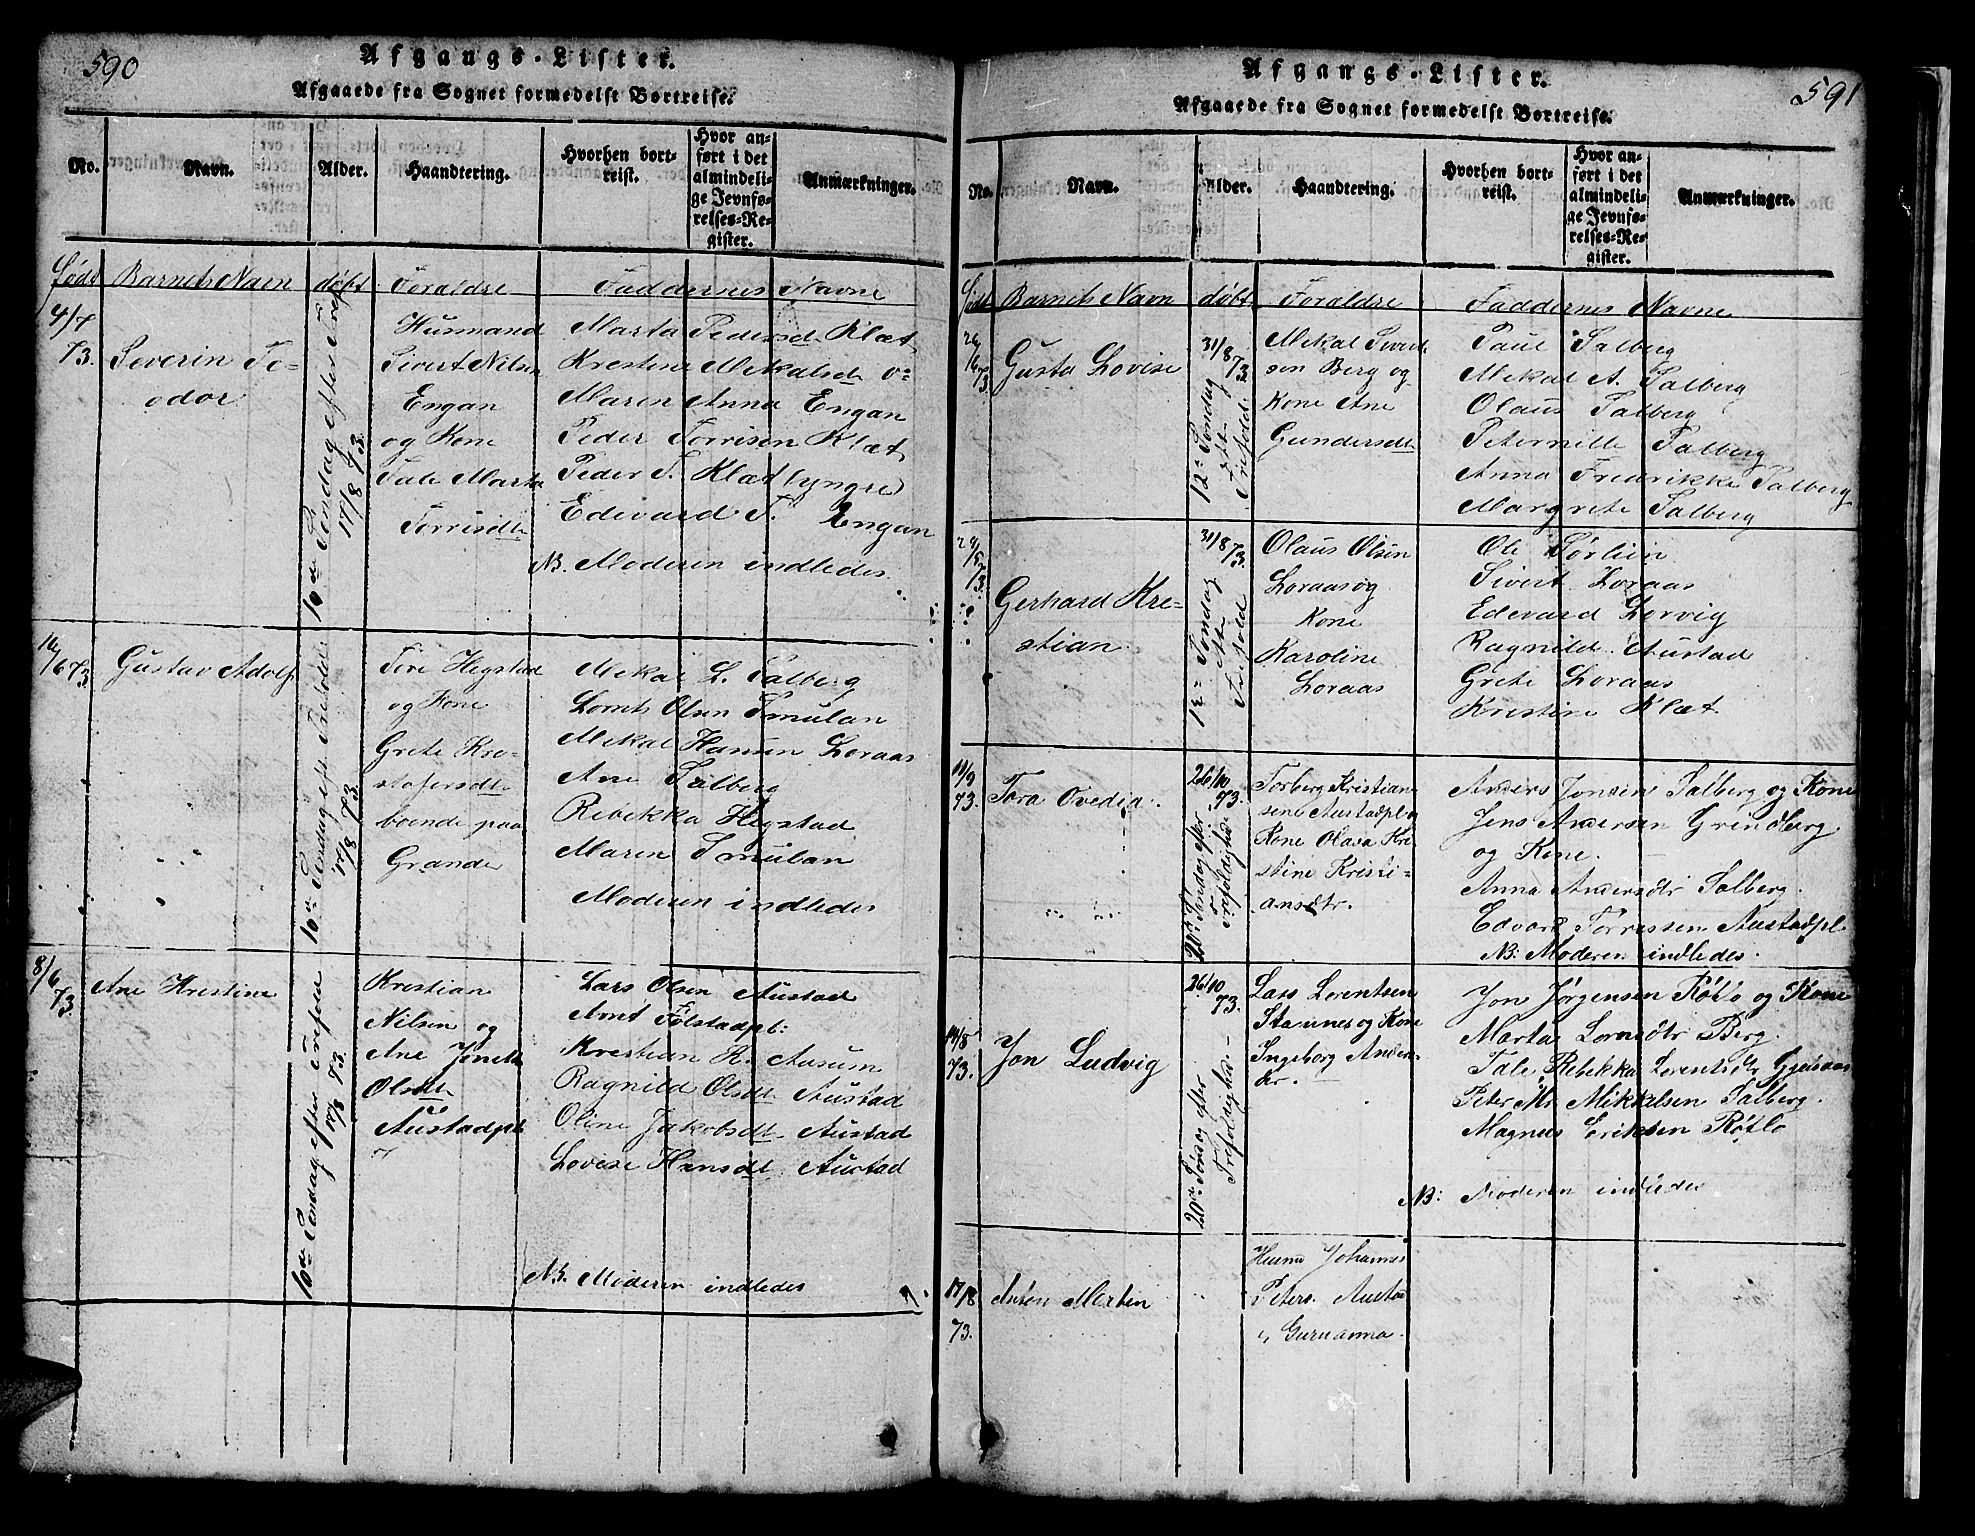 590
Afgangs-Lister.
Afgaaede fra Sognet formedelst Bortreise.
No.
Navn.
Alder.
Haandtering.
Hvorhen bort-
reist.
Hvor an-
ført i det
almindeli-
ge Jevnfø-
relses-Re-
gister.
Anmærkninger.
Født
Barnets Navn
døbt
Foraldre
Faddernes Navne
4/7
73.
Severin To-
odor
10de Søndag efter Tref
17/8 73.
Husmand
Sivert Nilsen
Engan
og Kone
Tale Marta
Torrisdtr
Marta Pedersd. Klæt
Krestine Mekalsdr
Maren Anna Engan
Peder Torrisen Klæt
Peder T. Klæt (yngre)
Edevard T. Engan
NB. Moderen indledes.
16/6 73
Gustav Adolf
10de Søndag eft. Trefoldi
17/8 73.
Tore Hegstad
og Kone
Grete Kre-
stofersdtr
boende paa
Grande
Mekal L. Salberg
Lornts Olsen Smulan
Mekal Hansen Loraas
Ane Salberg
Rebekka Hegstad
Maren Smulan
Moderen indledes
8/6
73
Ane Krestine
10de Søndag efter Trefold
17/8 73.
Krestian
Nilsen og
Ane Jonette
Olsdtr
Austadpl.
Lars Olsen Austad
Arnt Følstadpl:
Krestian K. Aasum
Ragnild Olsdt Austad
Oline Jakobsdt Austad
Lovise Hansdt Austad
NB. Moderen indledes
591
Afgangs-Lister.
Afgaaede fra Sognet formedelst Bortreise.
No.
Navn.
Alder.
Haandtering.
Hvorhen bort-
reist.
Hvor an-
ført i det
almindeli-
ge Jevnfø-
relses-Re-
gister.
Anmærkninger.
Født
Barnets Navn
døbt
Foraldre
Faddernes Navne
26/6
73
Gusta Lovise
31/8 73
12te Søndag
eft.
Trefold.
Mekal Sivert-
sen Berg og
Kone Ane
Gundersdt
Paul Salberg
Mekal A. Salberg
Olaus Salberg
Peternille Salberg
Anna Fredrikke Salberg
Margrete Salberg
73
Gerhard Kre-
stian
31/8 73
Søndag
Trefold
Olaus Olsen
Loraas og
Kone
Karoline
Loraas
Ole Førlien
Sivert Loraas
Edevard Lorvig
Ragnild Austad
Grete Loraas
Krestine Klæt
11/9
73.
Tora Ovedia.
26/10 73.
20de Søndag efter
Trefoldighed
Torberg Kristian-
sen Austadpl og
Kone Olasa Kri-
stine Kristi-
ansdtr.
Anders Jonsen Salberg og Kone
Jens Andersen Grindberg
og Kone.
Anna Andersdtr Salberg.
Edvard Torressen Austadpl.
NB: Moderen indledes.
14/8
73.
Jon Ludvig
26/10
73.
20de Sønog efter
Trefoldighed
Lars Lorentsen
Staunes og Kone
Ingeborg Anders-
dtr.
Jon Jørgensen Røtlo og Kone
Marta Lorntsdtr Berg.
Tale Rebekka Lorentsdtr
Peter Mr Mikkelsen Salberg.
Magnus Eriksen Røtlo
NB: Moderen indledes
17/8
73.
Anton Martin
Husmd Johannes
Peters. Austad
Guruanna